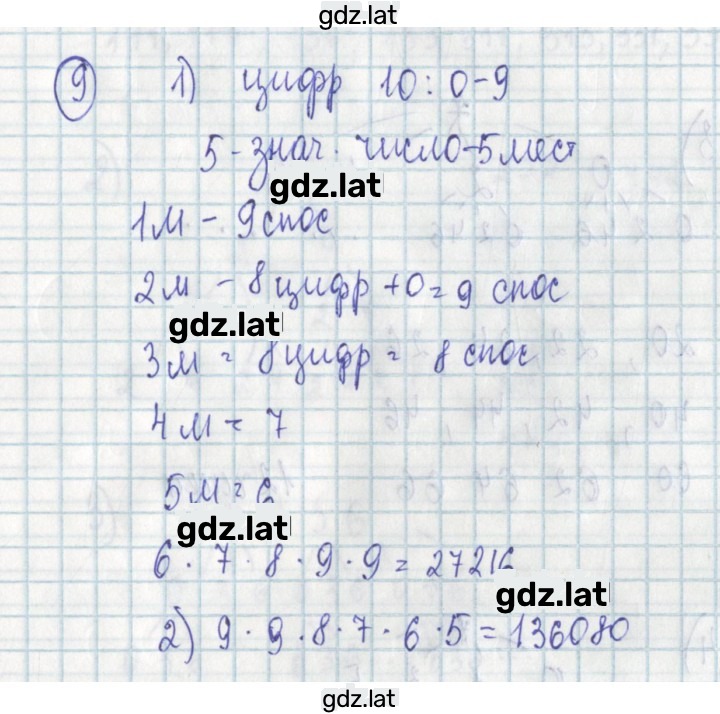 gdz.lat
9 1) цифр 10: 0-9
5-знач. число-5 мест
gdz.lat
1м - 9 спос
2м - 8 цифр + 0 = 9 спос
gdz.lat
3м = 8 цифр = 8 спос
4м = 7
5м = 6
gdz.lat
6 · 7 · 8 · 9 · 9 = 27216
gdz.lat
2) 9 · 9 · 8 · 7 · 6 · 5 = 136080
gdz.lat